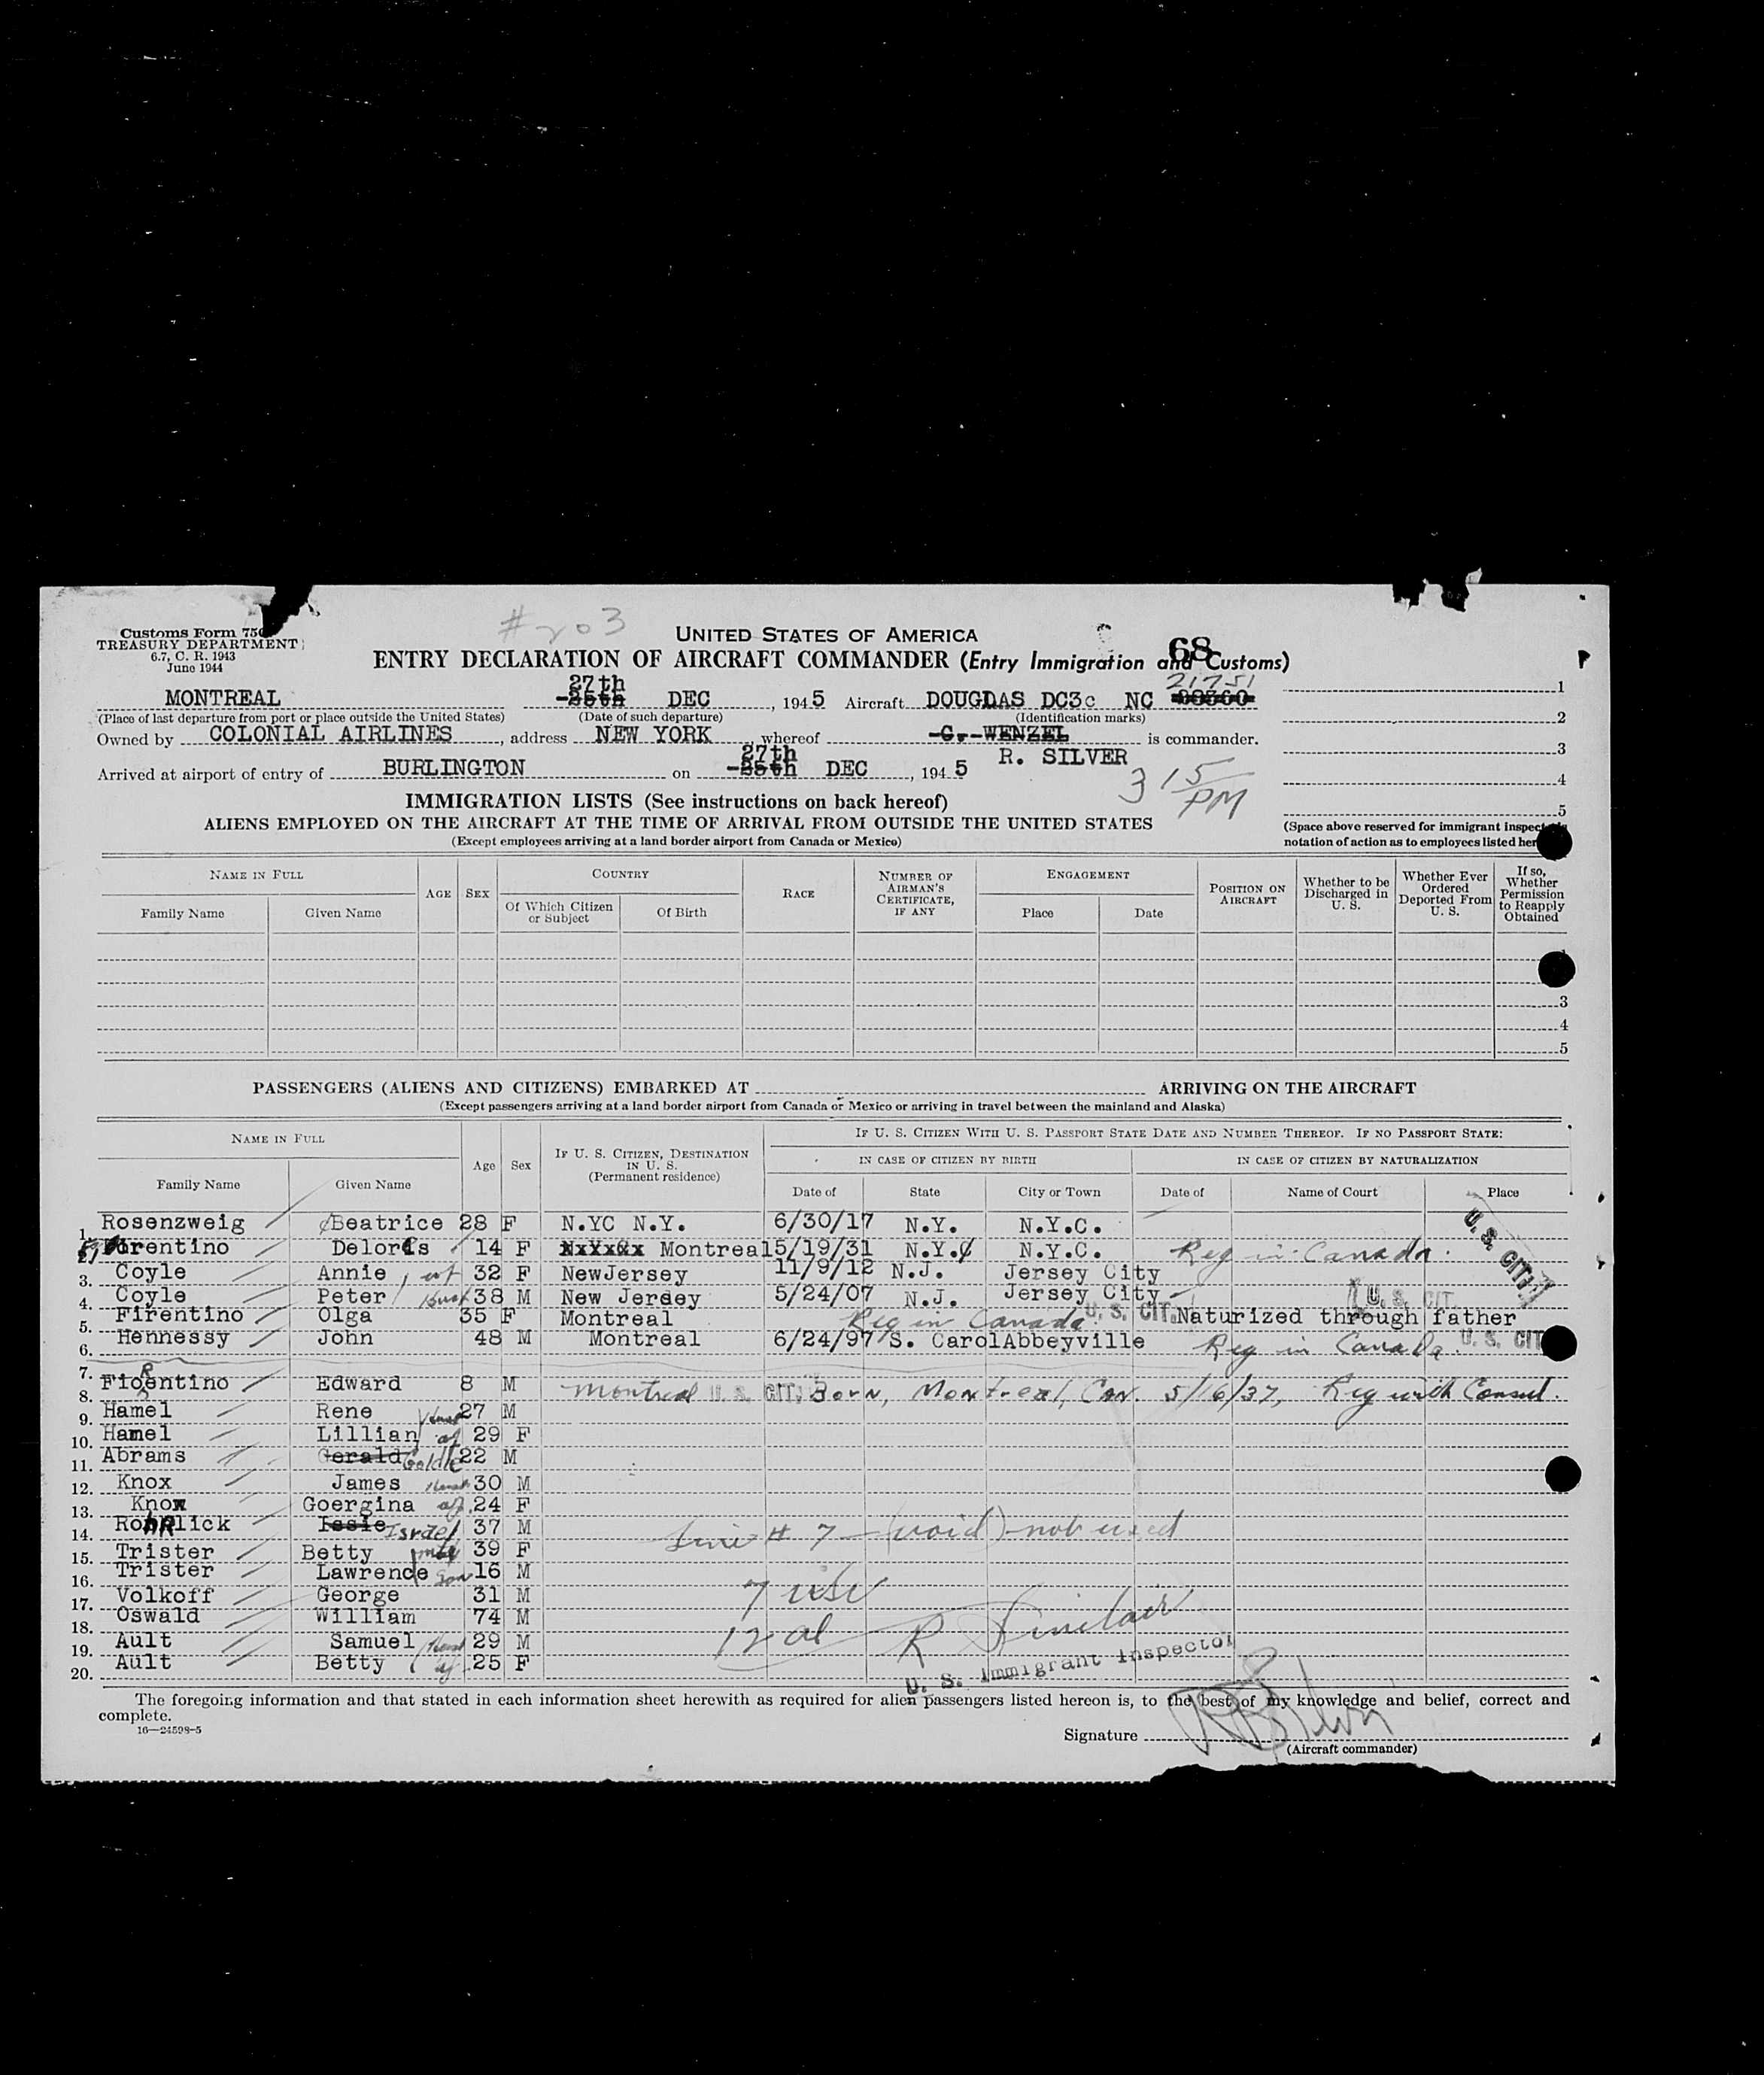 #203
Customs Form 750
TREASURY DEPARTMENT
6.7, C. R. 1943
June 1944
UNITED STATES OF AMERICA
68
ENTRY DECLARATION OF AIRCRAFT COMMANDER (Entry Immigration and Customs)
27th 21751
MONTREAL 25th DEC , 1945 Aircraft DOUGLAS DC3c NC 88360 1
(Place of last departure from port or place outside the United States) (Date of such departure) (Identification marks) 2
Owned by COLONIAL AIRLINES , address NEW YORK , whereof G. WENZEL is commander.
27th R. SILVER 3
Arrived at airport of entry of BURLINGTON on 25th DEC , 1945 4
3 15 PM
5
IMMIGRATION LISTS (See instructions on back hereof)
ALIENS EMPLOYED ON THE AIRCRAFT AT THE TIME OF ARRIVAL FROM OUTSIDE THE UNITED STATES
(Except employees arriving at a land border airport from Canada or Mexico)
(Space above reserved for immigrant
notation of action as to employees listed
NAME IN FULL AGE SEX COUNTRY RACE NUMBER OF AIRMAN'S CERTIFICATE, IF ANY ENGAGEMENT POSITION ON AIRCRAFT Whether to be Discharged in U. S. Whether Ever Ordered Deported From U. S. If so, Whether Permission to Reapply Obtained
Family Name Given Name Of Which Citizen or Subject Of Birth Place Date
3
4
5
PASSENGERS (ALIENS AND CITIZENS) EMBARKED AT ARRIVING ON THE AIRCRAFT
(Except passengers arriving at a land border airport from Canada or Mexico or arriving in travel between the mainland and Alaska)
NAME IN FULL Age Sex IF U. S. CITIZEN, DESTINATION IN U. S. (Permanent residence) IF U. S. CITIZEN WITH U. S. PASSPORT STATE DATE AND NUMBER THEREOF. IF NO PASSPORT STATE:
IN CASE OF CITIZEN BY BIRTH IN CASE OF CITIZEN BY NATURALIZATION
Family Name Given Name Date of State City or Town Date of Name of Court Place
1. Rosenzweig Beatrice 28 F N.YC N.Y. 6/30/17 N.Y. N.Y.C. U. S. CIT.
Fiorentino Deloris 14 F Montreal 5/19/31 N.Y. N.Y.C. Reg in Canada.
3. Coyle Annie, wf 32 F NewJersey 11/9/12 N.J. Jersey City
4. Coyle Peter husb 38 M New Jersey 5/24/07 N.J. Jersey City U. S. CIT
5. Firentino Olga 35 F Montreal Reg in Canada U. S. CIT. Naturized through father
6. Hennessy John 48 M Montreal 6/24/97 S. Carol Abbeyville Reg in Canada. U. S. CIT
7.
R
8. Fioentino Edward 8 M Montreal U. S. CIT. Born, Montreal, Can. 5/16/37, Reg with Consul.
9. Hamel Rene husb 27 M
10. Hamel Lillian wf 29 F
11. Abrams Gerald Goldie 22 M
12. Knox James husb 30 M
13. Knox Goergina wf. 24 F
14. RoHRlick Issie Israel 37 M Line # 7 (void) not used
15. Trister Betty 39 F
16. Trister Lawrence son 16 M
17. Volkoff George 31 M 7 usc
18. Oswald William 74 M
19. Ault Samuel husb 29 M 12 al R Sinclair
20. Ault Betty wf 25 F U. S. Immigrant Inspector
The foregoing information and that stated in each information sheet herewith as required for alien passengers listed hereon is, to the best of my knowledge and belief, correct and
complete.
16—24598-5
Signature R Silver
(Aircraft commander)